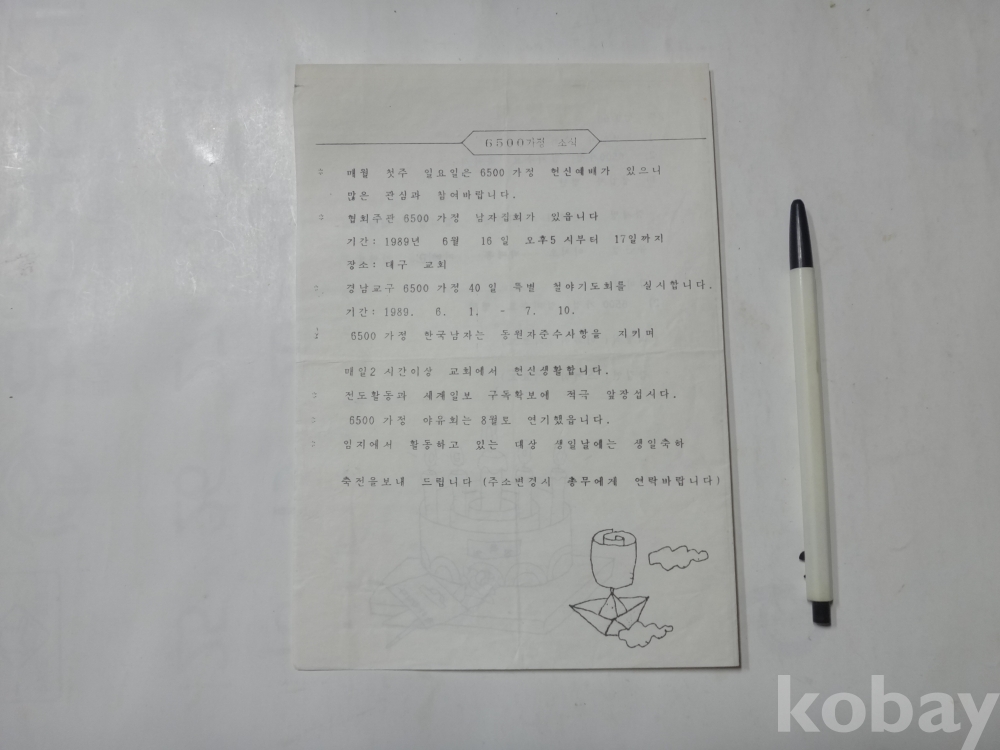 6500가정 소식
매월 첫주 일요일은 6500 가정 헌신예배가 있으니
많은 관심과 참여바랍니다.
협회주관 6500 가정 남자집회가 있읍니다
기간: 1989년 6월 16일 오후5시부터 17일까지
장소: 대구 교회
경남교구 6500 가정 40일 특별 철야기도회를 실시합니다.
기간: 1989. 6. 1. - 7. 10.
6500 가정 한국남자는 동원자준수사항을 지키며
매일2 시간이상 교회에서 헌신생활합니다.
전도활동과 세계일보 구독확보에 적극 앞장섭시다.
6500 가정 야유회는 8월로 연기했읍니다.
임지에서 활동하고 있는 대상 생일날에는 생일축하
축전을보내 드립니다 (주소변경시 총무에게 연락바랍니다)
kobay